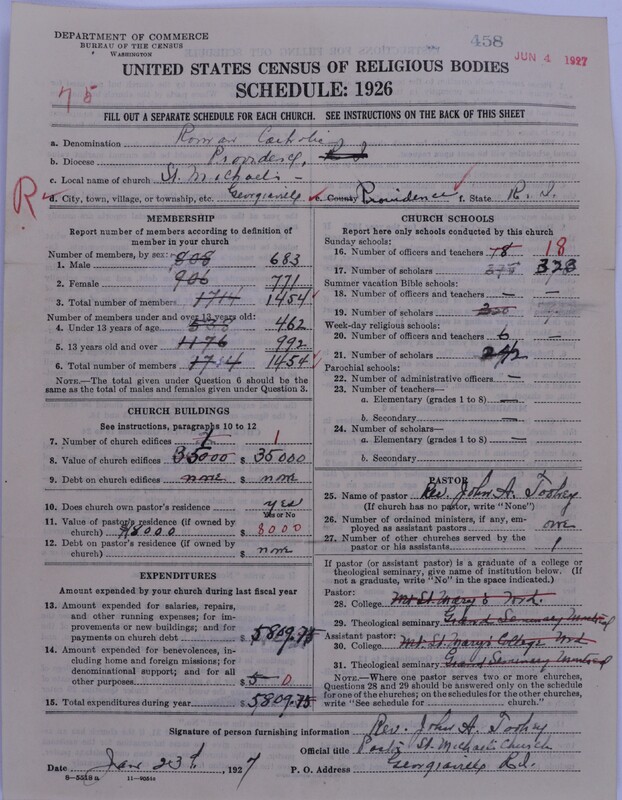 DEPARTMENT OF COMMERCE
BUREAU OF THE CENSUS
WASHINGTON
458
JUN 4 1927
UNITED STATES CENSUS OF RELIGIOUS BODIES
75
SCHEDULE: 1926
FILL OUT A SEPARATE SCHEDULE FOR EACH CHURCH. SEE INSTRUCTIONS ON THE BACK OF THIS SHEET
a. Denomination Roman Catholic
b. Diocese Providence, R I
c. Local name of church St. Michael's -
R
d. City, town, village, or township, etc. Georgiaville e. County Providence f. State R. I.
MEMBERSHIP
Report number of members according to definition of
member in your church
Number of members, by sex:
1. Male 808 683
2. Female 906 771
3. Total number of members 1714 1454
Number of members under and over 13 years old:
4. Under 13 years of age 538 462
5. 13 years old and over 1176 992
6. Total number of members 1734 1454
NOTE.—The total given under Question 6 should be the
same as the total of males and females given under Question 3.
CHURCH BUILDINGS
See instructions, paragraphs 10 to 12
7. Number of church edifices 1
8. Value of church edifices 35000 $ 35000
9. Debt on church edifices none $ none
10. Does church own pastor's residence yes
Yes or No
11. Value of pastor's residence (if owned by
church) $ 8000
12. Debt on pastor's residence (if owned by
church) $ none
EXPENDITURES
Amount expended by your church during last fiscal year
13. Amount expended for salaries, repairs,
and other running expenses; for im-
provements or new buildings; and for
payments on church debt $ 5809.75
14. Amount expended for benevolences,
including home and foreign missions; for
denominational support; and for all
other purposes $ 0
15. Total expenditures during year $ 5809.75
CHURCH SCHOOLS
Report here only schools conducted by this church
Sunday schools:
16. Number of officers and teachers 18 18
17. Number of scholars 375 323
Summer vacation Bible schools:
18. Number of officers and teachers — —
19. Number of scholars 320
Week-day religious schools:
20. Number of officers and teachers 6 —
21. Number of scholars 242
Parochial schools:
22. Number of administrative officers —
23. Number of teachers—
a. Elementary (grades 1 to 8) —
b. Secondary —
24. Number of scholars—
a. Elementary (grades 1 to 8) —
b. Secondary
PASTOR
25. Name of pastor Rev. John A. Toohey
(If church has no pastor, write "None")
26. Number of ordained ministers, if any, em-
ployed as assistant pastors one
27. Number of other churches served by the
pastor or his assistants 1
If pastor (or assistant pastor) is a graduate of a college or
theological seminary, give name of institution below. (If
not a graduate, write "No" in the space indicated.)
Pastor:
28. College Mt St Mary's Md.
29. Theological seminary Grand Seminary Montreal
Assistant pastor:
30. College Mt. St Mary's College Md
31. Theological seminary Grand Seminary Montreal
NOTE.—Where one pastor serves two or more churches,
Questions 28 and 29 should be answered only on the schedule
for one of the churches; on the schedules for the other churches,
write "See schedule for church."
Signature of person furnishing information Rev. John A. Toohey
Official title Pastor St. Michael's Church
Date June 23d, 1927 P. O. Address Georgiaville R.I.
8—5518 a